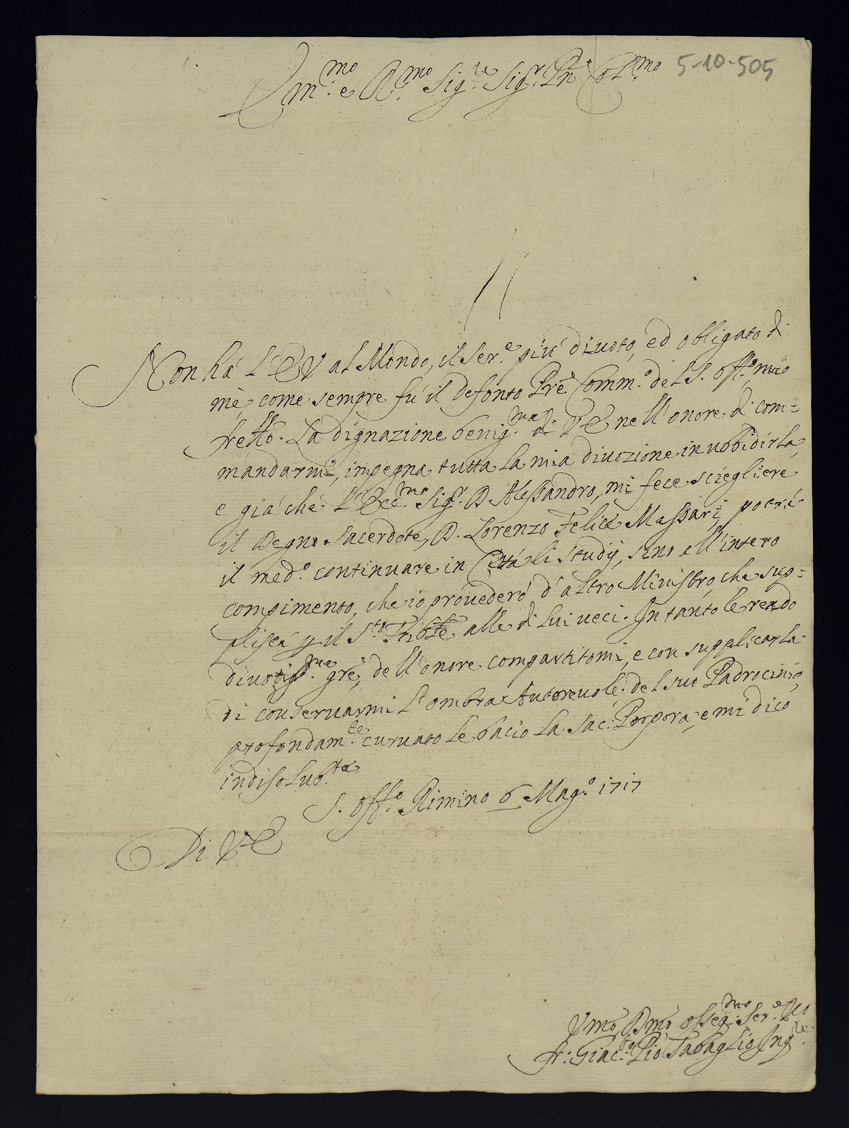 Em.mo e R.mo Sig.re Sig.r Pne Col.mo
5-10-505
Non há L'EV al Mondo, il ser.e più divoto, ed obligato di
mè, come sempre fù il defonto Pre Comm.o del S. Off.o mio
frello. La dignazione benig.ma di VE nell'onore di com=
mandarmi, impegna tutta la mia divozione in ubbidirla,
e giá che l'Ecc.mo Sig.r D. Alessandro, mi fece sciegliere
il degno sacerdote, D. Lorenzo Felice Massari, potrá
il med.o continuare in Cittá li studij, sino all'intero
compimento, che io provederó d'altro Ministro, che sup=
plisca p il S.to Trible alle di lui veci. In tanto le rendo
divotiss.me gre, dell'onore compartitomi, e con supplicarla
di conservarmi l'ombra Autorevole del suo Padrocinio,
profondam.te curvato le bacio la sac. Porpora, e mi dico
indisolub.te
S. Off.o Rimino 6 Mag.o 1717
Di V.E
Vmo, Dmo osseq.mo Ser.e Obo
fr: Giac.o Pio Tabaglio Inq.re